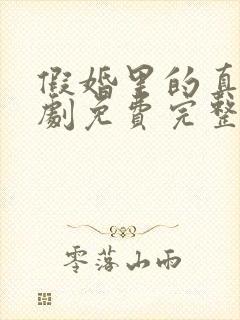 假婚里的真
劇免費完整
零落山雨